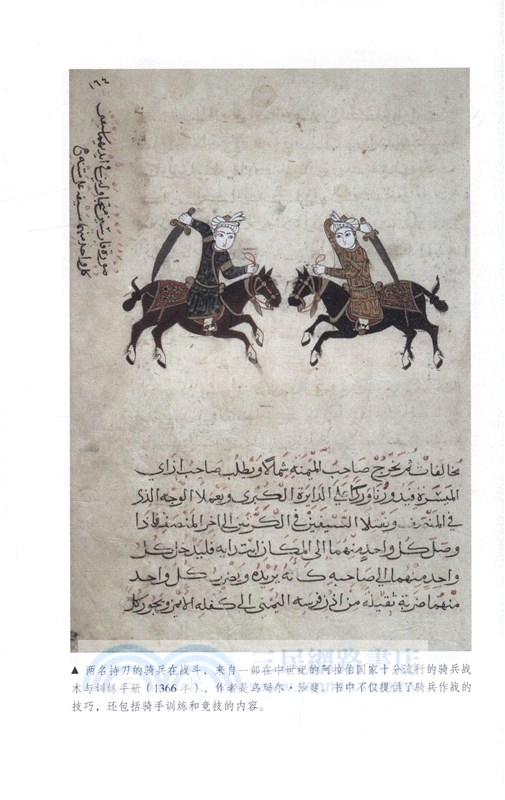 صورة فارسين في ايديهما
كل واحد منهما سيفه على
ثم يخرج صاحب الميمنه شمالا ويطلب صاحب
الميسرة على الدايرة الكبرى ويعملا الوجه الذي
في ويسلا السيفين في الى اخر المنصف فاذا
وصل كل واحد منهما الى المكان ابتدا به فليدخل كل
واحد منهما الى صاحبه كانه يريده ويضرب كل واحد
منهما ضربة ثقيله من اذن فرسه اليمنى الى كفله الايمن
▲ 两名持刀的骑兵在战斗，来自一部在中世纪的阿拉伯国家十分流行的骑兵战
术与训练手册（1366 年），作者是乌玛尔·沙斐。书中不仅提供了骑兵作战的
技巧，还包括骑手训练和竞技的内容。